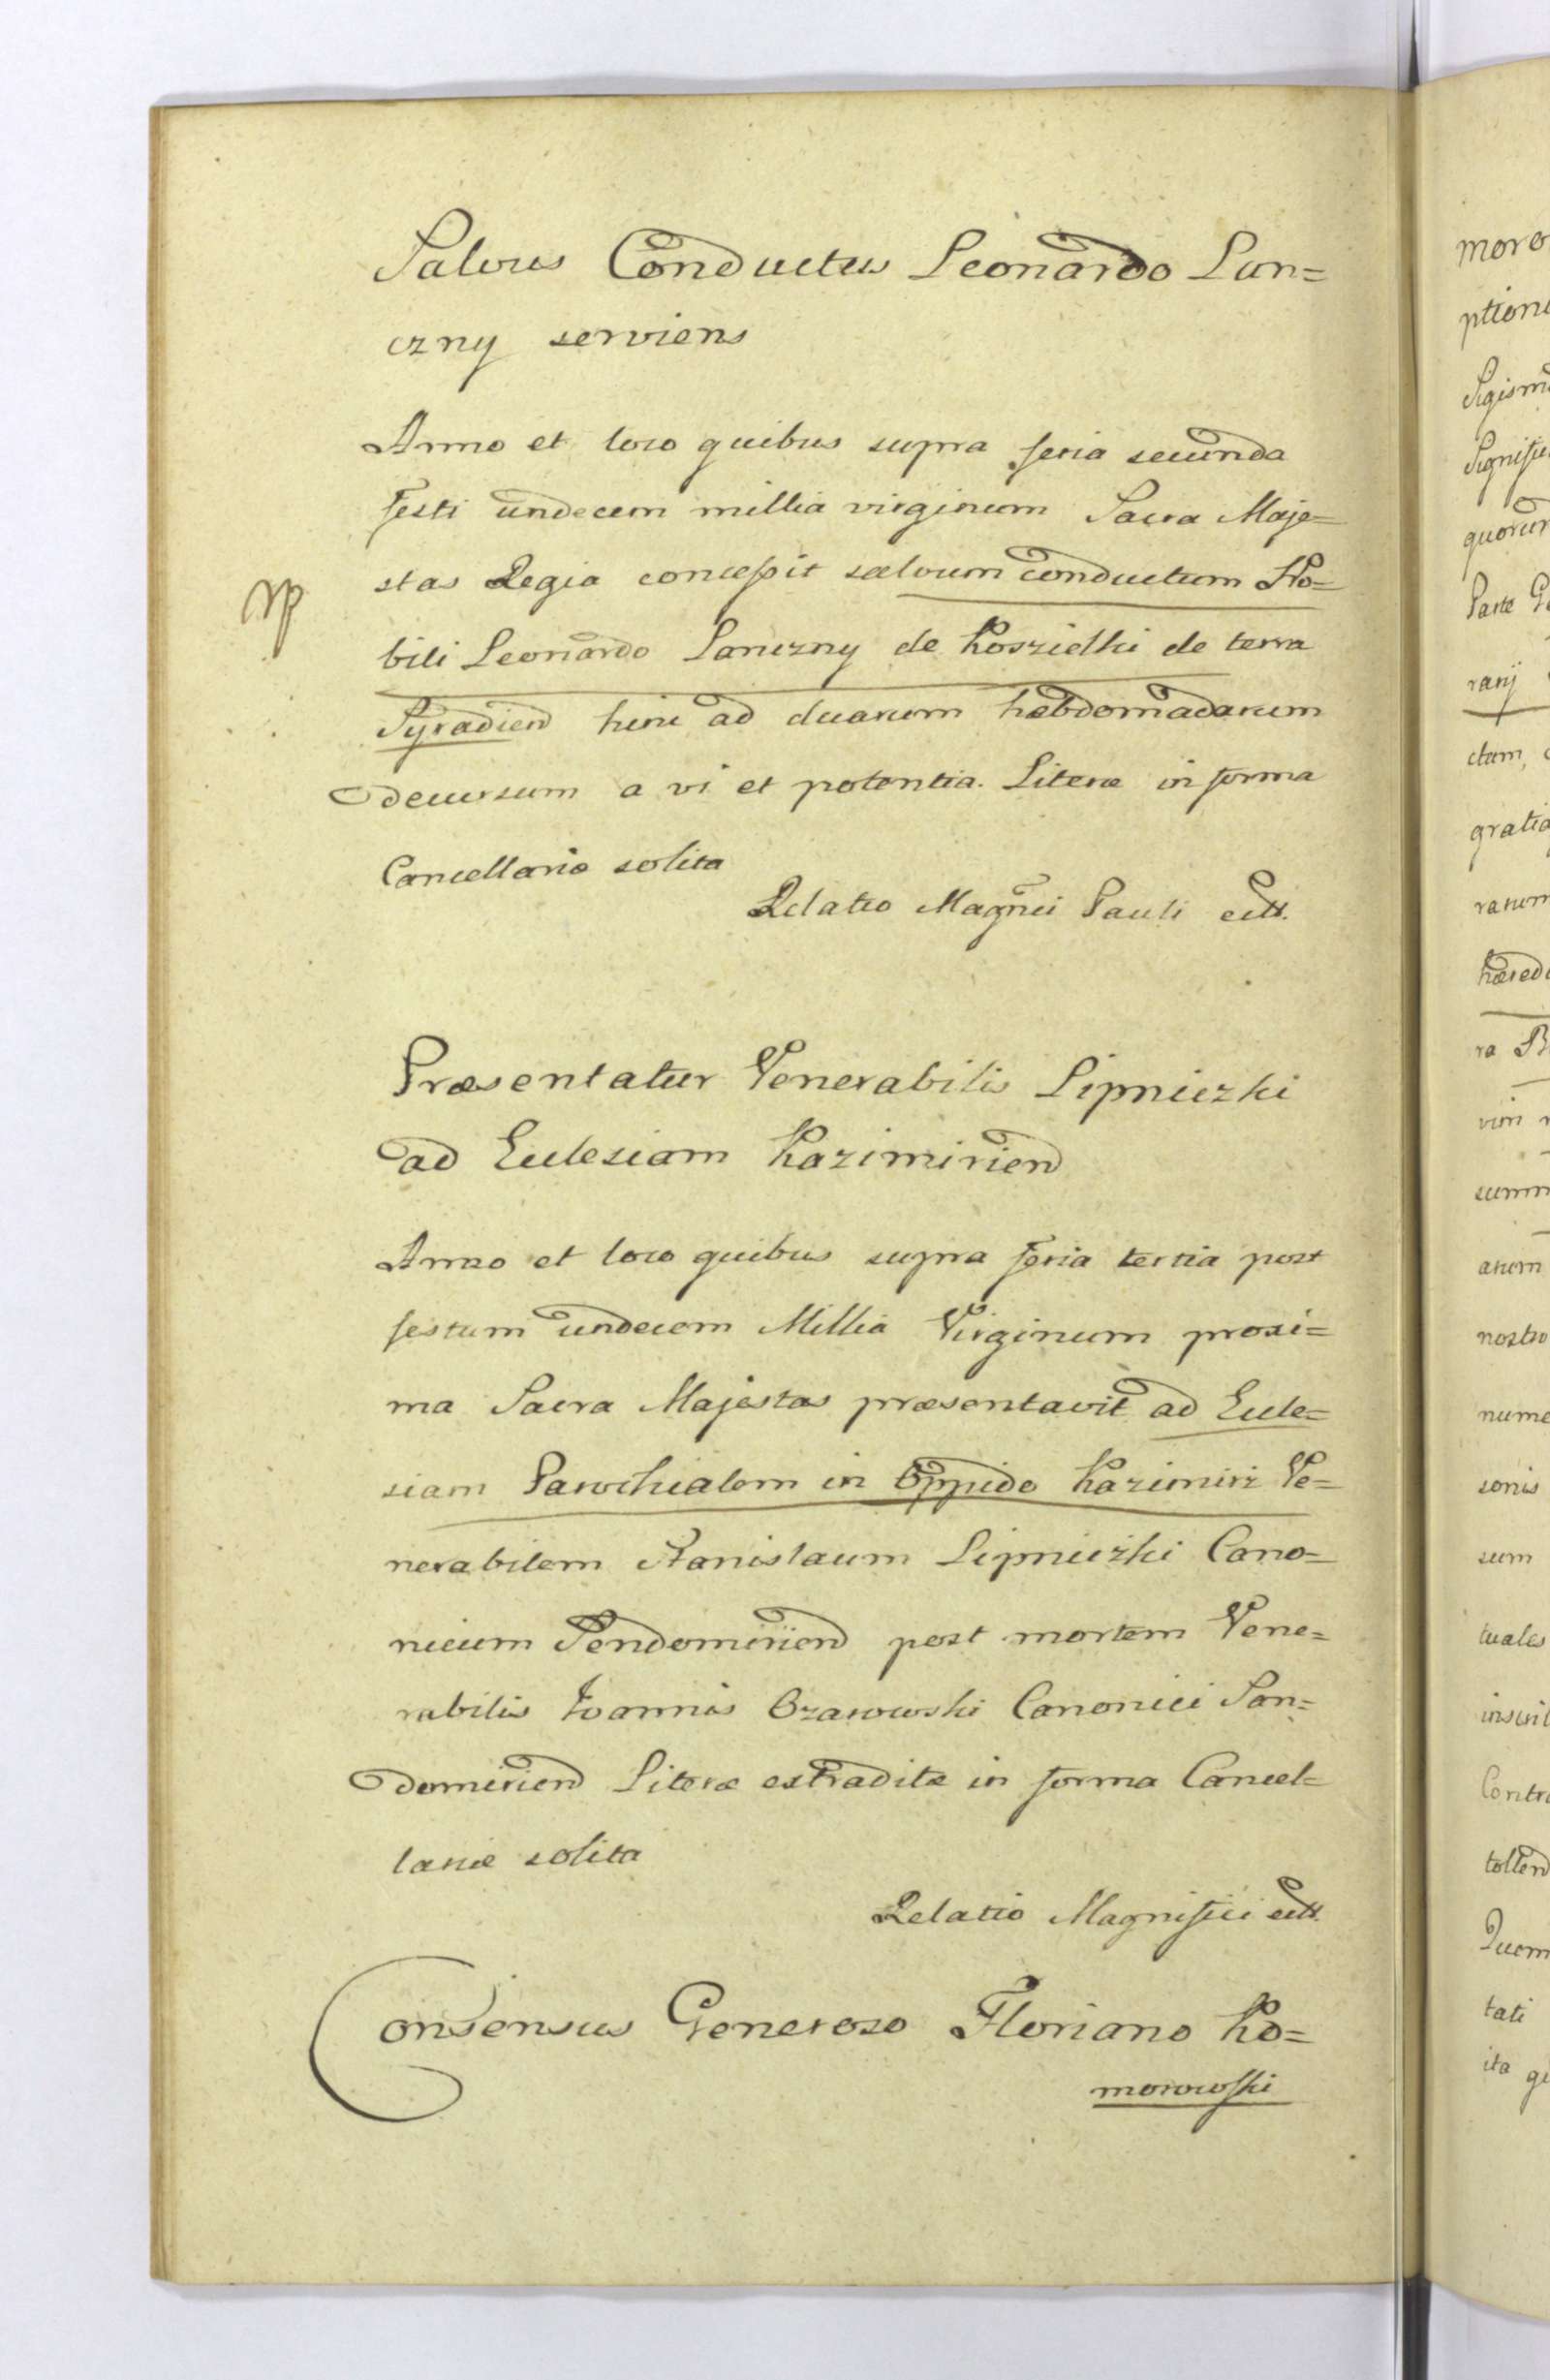 Salvus Conductus Leonardo Lan=
czny serviens
Anno et loco quibus supra feria secunda
festi undecem millia virginum Sacra Maje=
stas Regia concessit salvum conductum No=
bili Leonardo Lanczny de Koszielki de terra
Syradien hinc ad duarum hebdomadarum
decursum a vi et potentia. Literæ in forma
Cancellariæ solita
Relatio Magnci Pauli ectt.
Præsentatur Venerabilis Lipniczki
ad Ecclesiam Kazimirien
Anno et loco quibus supra feria tertia post
festum undecem Millia Virginum proxi=
ma Sacra Majestas præsentavit ad Eccle=
siam Parochialem in Oppido Kazimirz Ve=
nerabilem Stanislaum Lipniczki Cano=
nicum Sendomirien post mortem Vene=
rabilis Ioannis Ozarowski Canonici San=
domirien Literæ extraditæ in forma Cancel=
lariæ solita
Relatio Magnifici ectt.
Consensus Generoso Floriano Ko=
morowski
moro
ptione
Sigism
Signific
quorum
Parte G
ranj
ctam,
gratia
rarum
hæred
ra B
summ
arum
nostro
nume
sonis
sum
tuales
inscri
Contra
tollen
Quem
tati
ita